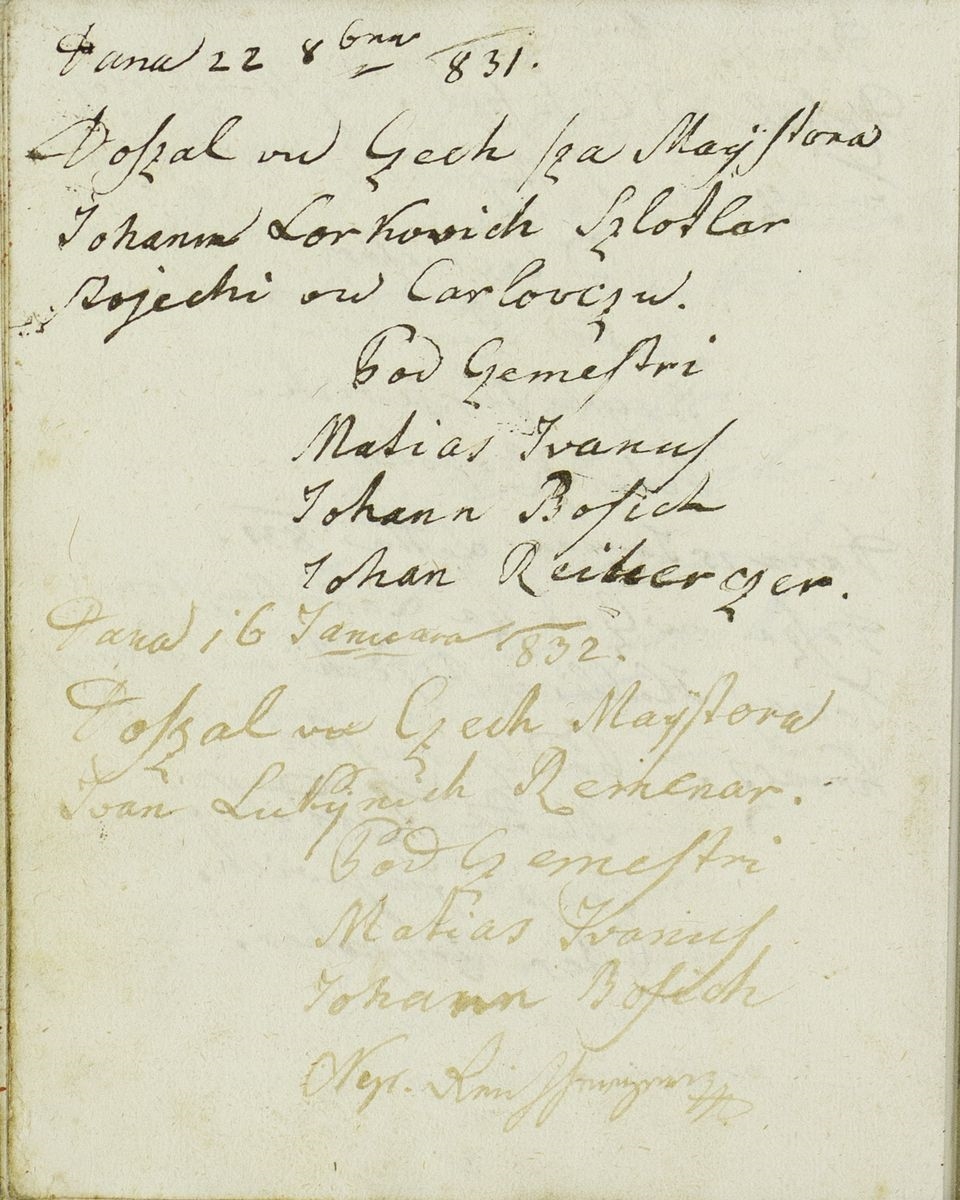 Dana 22 8bra 831.
Doſzal vu Czech ſza Mayſtora
Johann Lorkovich Szlotlar
ztojechi vu Carlovczu.
Pod Czemeſtri
Matias Ivanuſ
Johann Boſich
Johan
Dana 16 Januara 832.
Doſzal vu Czech Mayſtora
Ivan Lukÿnich Remenar.
Pod Czemeſtri
Matias Ivanuſ
Johann Boſich
Nep.